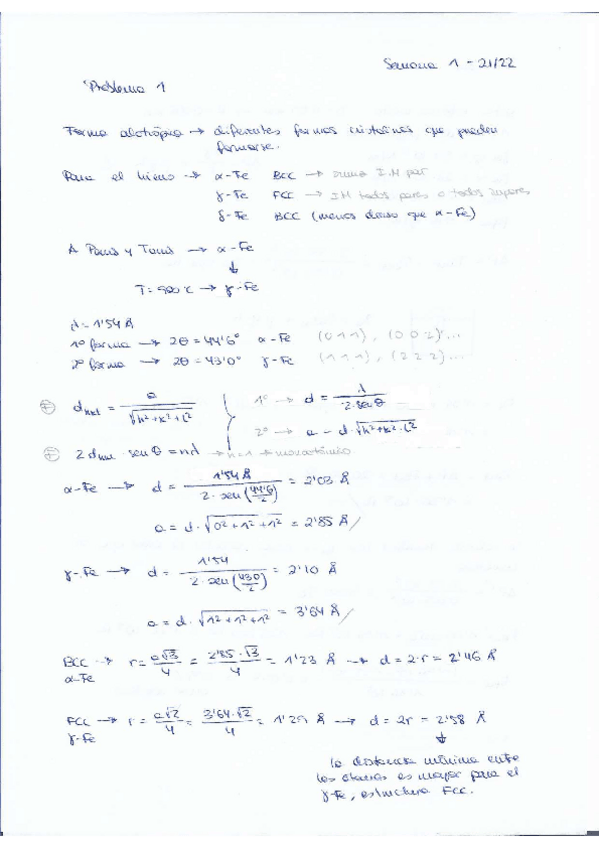 Semana 1 - 21/22
Problema 1
Forma alotrópica → diferentes formas cristalinas que pueden
formarse.
Para el hierro → α-Fe BCC → suma I.M par
γ-Fe FCC → IM todos pares o todos impares
δ-Fe BCC (menos denso que α-Fe)
A Pamb y Tamb → α-Fe
↓
T = 900 K → γ-Fe
λ = 1'54 Å
1ª forma → 2θ = 44'6° α-Fe (0 1 1), (0 0 2)...
2ª forma → 2θ = 43'0° γ-Fe (1 1 1), (2 2 2)...
d_hkl = a / √(h²+k²+l²) 1º → d = λ / 2·senθ
2º → a = d·√(h²+k²+l²)
2d_hkl · senθ = nλ → n=1 →
α-Fe → d = 1'54 Å / 2·sen(44'6/2) = 2'03 Å
a = d·√(0²+1²+1²) = 2'85 Å
γ-Fe → d = 1'54 / 2·sen(43'0/2) = 2'10 Å
a = d·√(1²+1²+1²) = 3'64 Å
BCC → r = a√3/4 = 2'85·√3/4 = 1'23 Å → d = 2·r = 2'46 Å
α-Fe
FCC → r = a√2/4 = 3'64·√2/4 = 1'29 Å → d = 2r = 2'58 Å
γ-Fe
↓
la distancia mínima entre
los átomos es mayor para el
γ-Fe, estructura FCC.